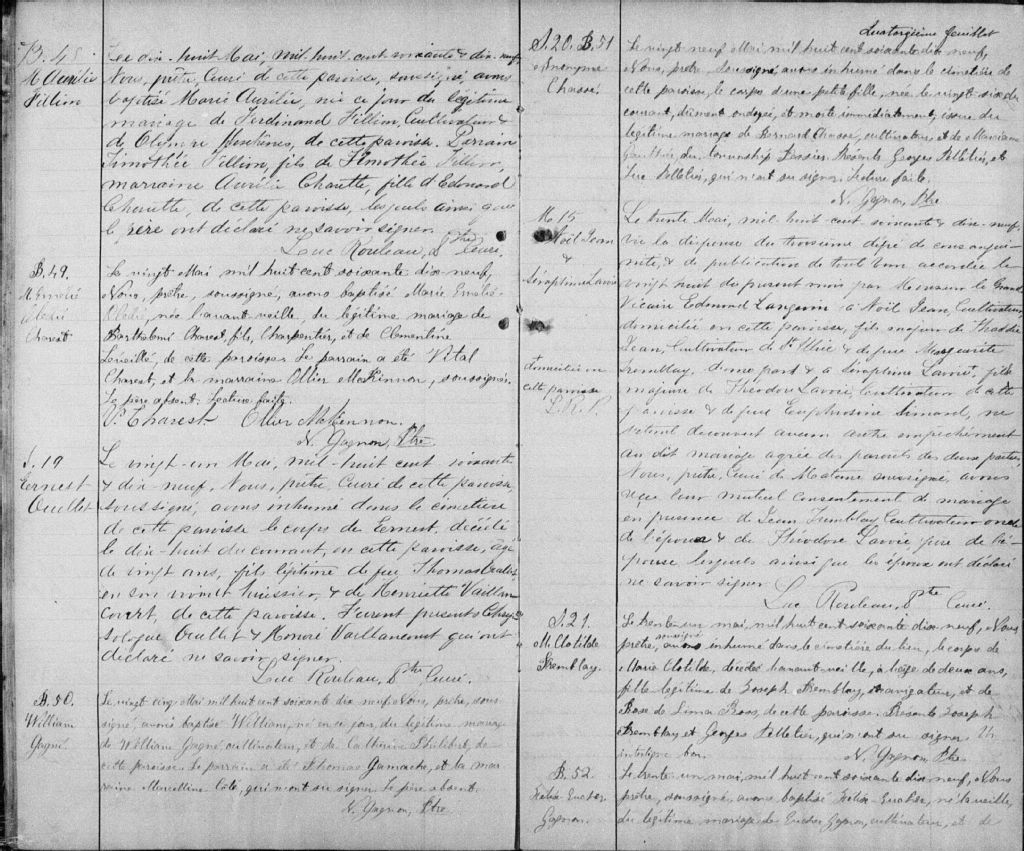 B. 48
M. Aurélie
Fillion
Le dix-huit Mai, mil huit cent soixante & dix-neuf
Nous, prêtre Curé de cette paroisse, soussigné avons
baptisé Marie Aurélie, née ce jour du légitime
mariage de Ferdinand Fillion, Cultivateur &
de Olympe de cette paroisse. Parrain
Timothée Fillion, fils de Timothée Fillion,
marraine Aurélie Chouette, fille d'Edouard
Chouette, de cette paroisse, lesquels ainsi que
le père ont déclaré ne savoir signer.
Luc Rouleau, Ptre Curé.
B. 49.
M. Emélie
Charest
Le vingt Mai mil huit cent soixante dix-neuf,
Nous, prêtre, soussigné, avons baptisé Marie Emélie
née l'avant veille, du légitime mariage de
Barthelemi Charest, fils, Charpentier, et de Clementine
Léveillé, de cette paroisse. Le parrain a été Vital
Charest, et la marraine Ollier McKinnon, soussignés.
Le père absent. Lecture faite.
V. Charest Ollier McKennon.
N. Gagnon, Ptre
S. 19
Ernest
Ouellet
Le vingt-un Mai, mil-huit cent soixante
& dix-neuf, Nous, prêtre, Curé de cette paroisse,
soussigné, avons inhumé dans le cimetière
de cette paroisse le corps de Ernest, décédé
le dix-huit du courant, en cette paroisse, agé
de vingt ans, fils légitime de feu Thomas Ouellet
en son vivant huissier, & de Henriette Vaillan
court, de cette paroisse. Furent présents Chry
sologue Ouellet & Honoré Vaillancourt qui ont
déclaré ne savoir signer.
Luc Rouleau, Ptre Curé.
B. 50.
William
Gagné.
Le vingt cinq Mai mil huit cent soixante dix neuf, Nous, prêtre, sous-
signé, avons baptisé William, né en ce jour, du légitime mariage
de William Gagné, cultivateur, et de Catherine Philibert, de
cette paroisse. Le parrain a été Thomas Gamache, et la mar
raine Marcelline Côté, qui n'ont su signer. Le père absent.
N. Gagnon, Ptre
feuillet
S. 20. B. 51
Anonyme
Chassé.
Le vingt neuf Mai mil huit cent soixante dix neuf,
Nous, prêtre soussigné avons inhumé dans le cimetière de
cette paroisse, le corps d'une petite fille, née le vingt six du
courant, dûment ondoyée, et morte immédiatement, issue du
légitime mariage de Bernard Chassé, cultivateur, et de
Gauthier, du township Tessier. Présents Georges Pelletier, et
Luc Pelletier, qui n'ont su signer. Lecture faite.
N. Gagnon, Ptre
M. 15
Noël Jean
&
Séraphine Lavoie
domiciliés en
cette paroisse
Le trente Mai, mil huit cent soixante & dix-neuf,
Vu la dispense du troisième degré de consangui-
nité, & de publication de tout ban accordée le
vingt huit du present mois par Monsieur le Grand
Vicaire Edmond Langevin à Noël Jean, Cultivateur,
domicilié en cette paroisse, fils majeur de Thaddée
Jean, Cultivateur de St Ulric & de feue Marguerite
Tremblay, d'une part & à Séraphine Lavoie, fille
majeure de Théodore Lavoie, Cultivateur de cette
paroisse & de feue Euphrosine Simard, ne
s'étant découvert aucun autre empêchement
au dit mariage agrée des parents des deux parties,
Nous, prêtre, Curé de Matane soussigné, avons
reçu leur mutuel consentement de mariage
en presence de Jean Tremblay, Cultivateur oncle
de l'époux & de Théodore Lavoie, pere de l'é-
pouse lesquels ainsi que les époux ont déclaré
ne savoir signer.
Luc Rouleau, Ptre Curé.
S. 21.
M. Clotilde
Tremblay.
Le trente un mai, mil huit cent soixante dix neuf, Nous
prêtre, soussigné avons inhumé dans le cimetière du lieu, le corps de
Marie Clotilde, décédée l'avant veille, à l'âge de deux ans,
fille légitime de Joseph Tremblay, navigateur, et de
Rose de Lima Ross, de cette paroisse. Présents Joseph
Tremblay et Georges Pelletier, qui n'ont su signer. Un
interligne bon.
N. Gagnon, Ptre
B. 52.
Félix Eucher
Gagnon.
Le trente un mai, mil huit cent soixante dix neuf, Nous
prêtre, soussigné, avons baptisé Félix Eucher, né la veille,
du légitime mariage de Eucher Gagnon, cultivateur, et de